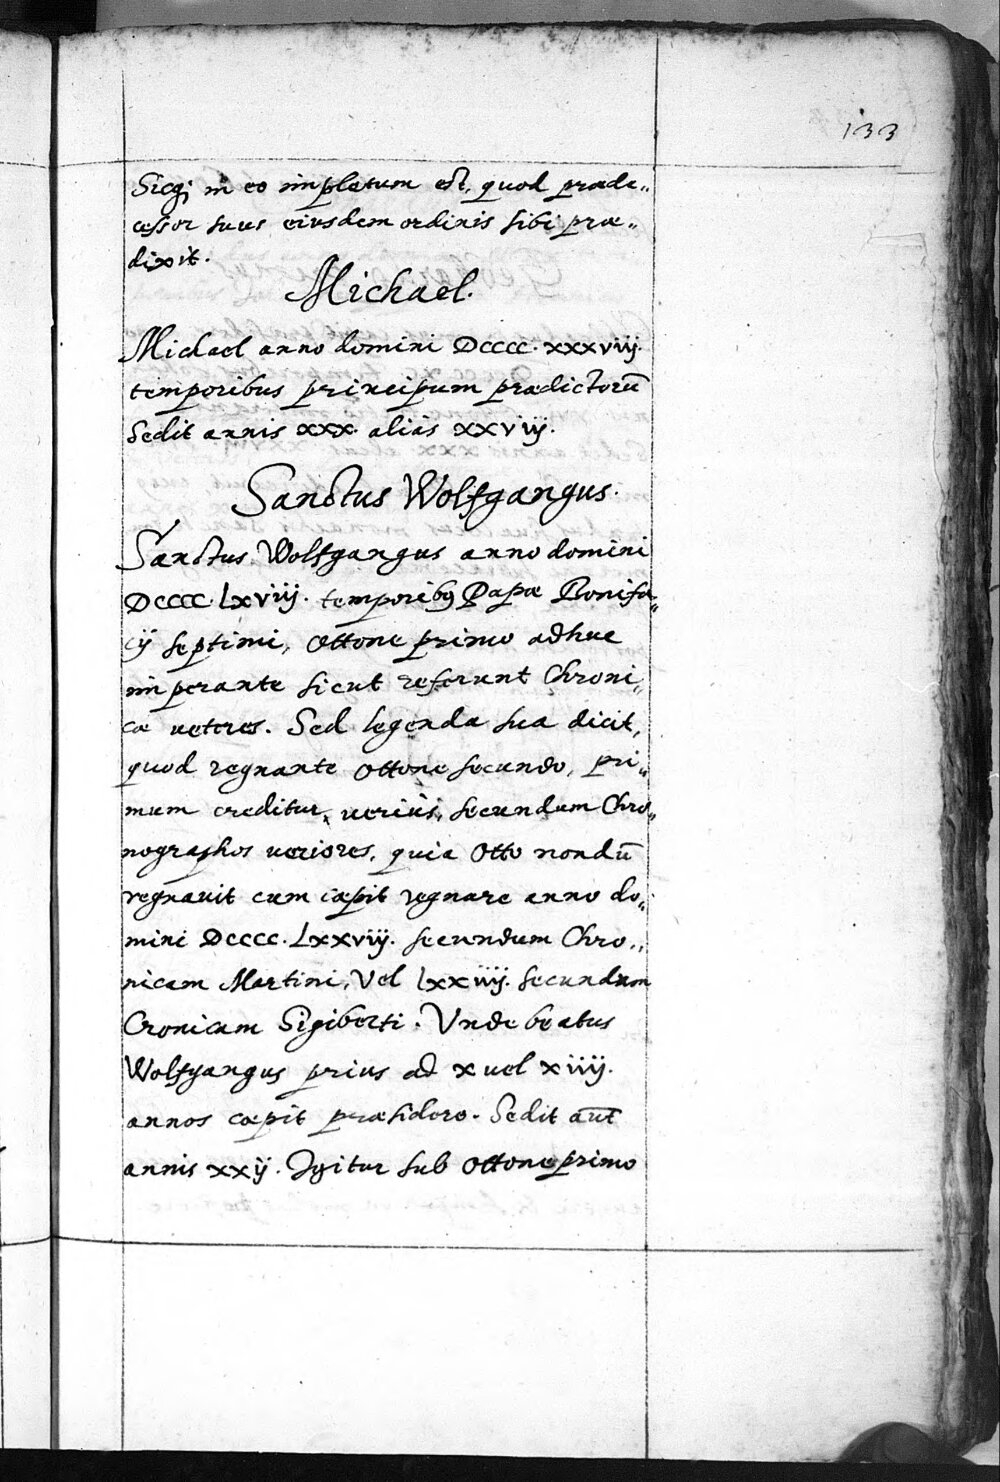 133
Sicq; in eo impletum est, quod præde„
cessor suus eiusdem ordinis sibi præ„
dixit.
Michael.
Michael anno domini DCCCC. xxxviij.
temporibus principum prædictorū
Sedit annis xxx. alias xxviij.
Sanctus Wolfgangus.
Sanctus Wolfgangus anno domini
DCCCC. Lxviiij. temporibꝰ Papæ Bonifa„
cij septimi, Ottone primo adhuc
imperante sicut referunt Chroni„
cæ veteres. Sed legenda sua dicit,
quod regnante Ottone secundo, pri„
mum creditur, verius, secundum Chro„
nographos veriores, quia Otto nondū
regnauit cum cœpit regnare anno do„
mini DCCCC. Lxxviij. secundum Chro„
nicam Martini, Vel Lxxiiij. secundum
Cronicam Sigiberti. Vnde beatus
Wolfgangus prius ad x vel xiiij.
annos cœpit præsidere. Sedit aūt
annis xxij. Igitur sub Ottone primo